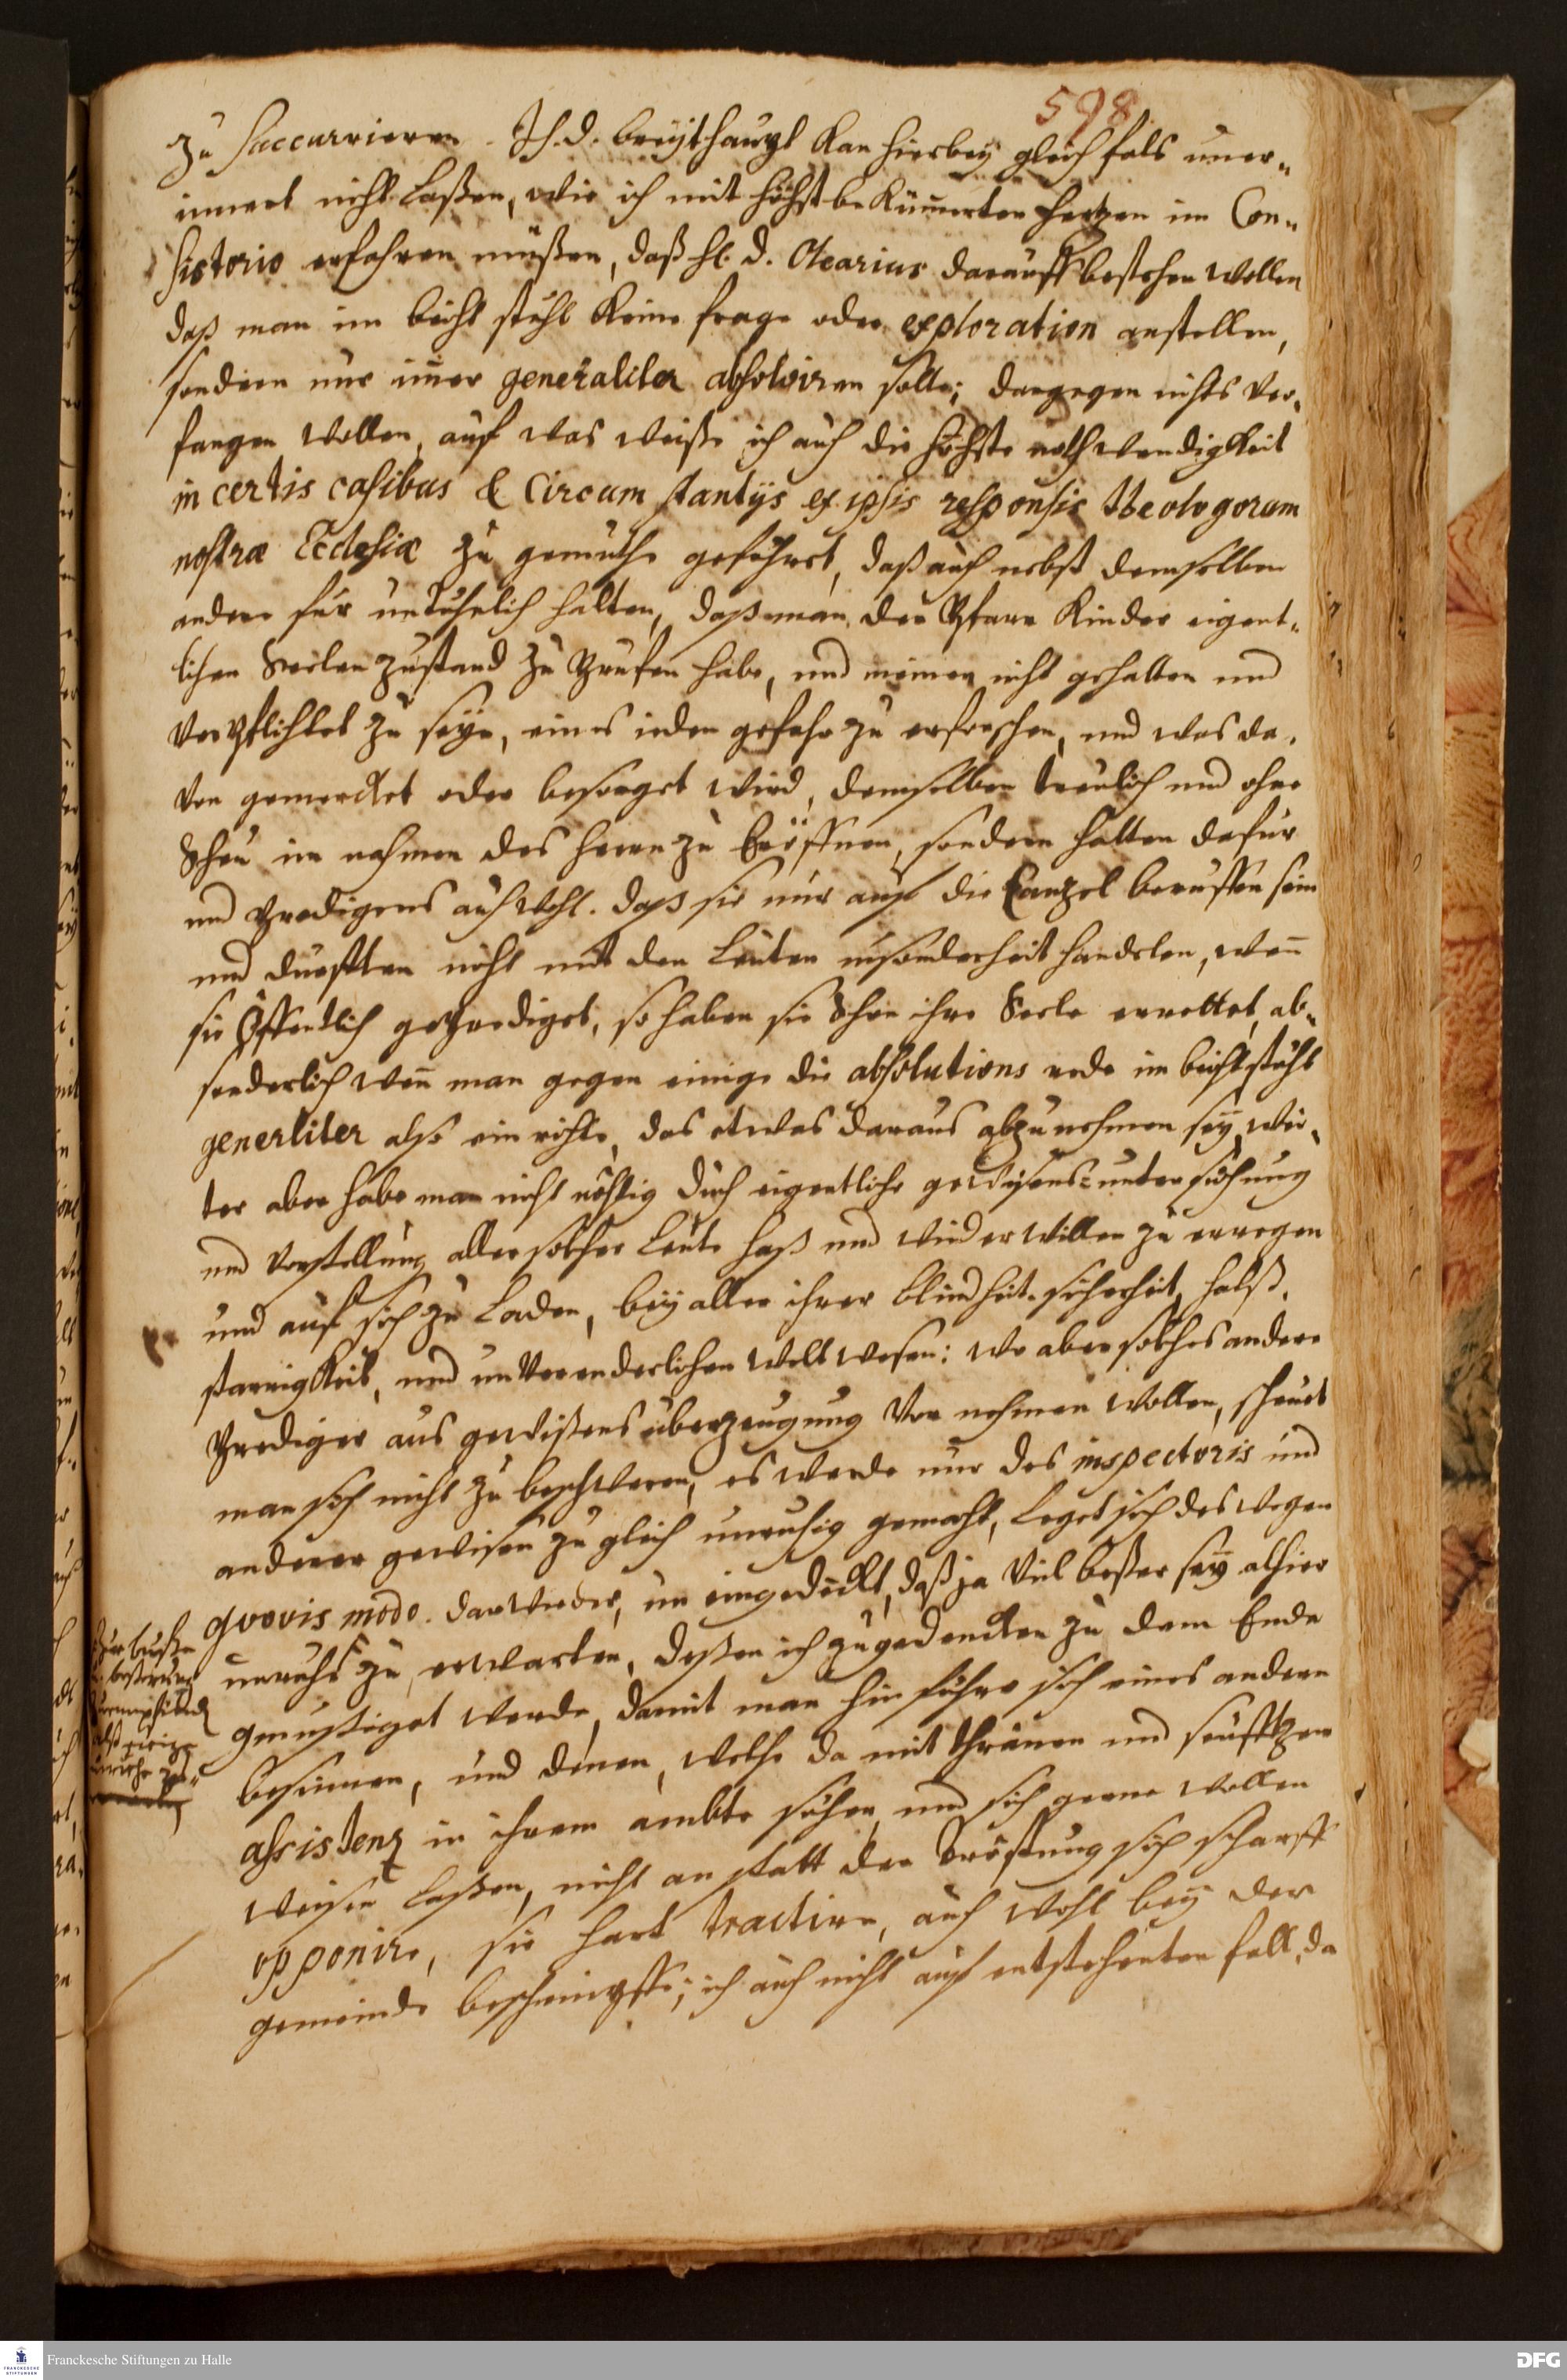 598
zu succurrieren. Ich D. breythaupt kan hierbey gleichfals uner-
innert nicht laßen, wie ich mit höchst bekümerten hertzen im Con-
sistorio erfahren müßen, daß H. D. Olearius darauff bestehen wollen
daß man im beicht stuhl keine frage oder exploration anstellen,
sondern nur imer generaliter absolviren solle; dargegen nichts ver-
fangen wollen, auf was weiße ich auch die höchste nothwendigkeit
in certis casibus & circumstantijs ex ipsis responsis theologorum
nostræ Ecclesiæ zu gemüthe geführet, daß auch nebst demselben
andere für unthulich halten, daß man der Pfarr Kinder eigent-
lichen Seelen zustand zu prüfen habe, und meinen nicht gehalten und
verpflichtet zu seyn, eines ieden gefahr zu erforschen, und was da-
von gemercket oder besorget wird, demselben treulich und ohne
Scheu im nahmen des herrn zu Eröffnen, sondern halten dafür
und predigens auch wohl. daß sie nur auf die Canzel beruffen sein
und durfften nicht mit den Leuten insonderheit handelen, wenn
sie öffentlich geprediget, so haben sie schon ihre Seele errettet, ab-
sonderlich wen man gegen einige die absolutions rede im beichtstuhl
generliter also ein richte, das etwas daraus abzunehmen sey, wei-
ter aber habe man nicht nöthig durch eigentliche gewisens-untersuchung
und vorstellung aller solcher Leute haß und wiederwillen zu erregen
und auf sich zu laden, bey aller ihrer blindheit, sicherheit, halß-
starrigkeit, und unveränderlichen weltwesen: wo aber solches andere
Prediger aus gewißens überzeugung vor nehmen wollen, scheuet
man sich nicht zu beschweren, es werde nur des inspectoris und
anderer gewisen zu gleich unruhig gemacht, leget sich deswegen
quovis modo darwieder, un eingedenckt, daß ja viel beßer sey alhier
zur buße
u. beßerung
alß ewige
unruhe zu erwarten, deßen ich zugedencken zu dem Ende
gemüßiget werde, damit man hinführo sich eines andern
besinnen, und denen, welche da mit thränen und seufftzen
assistenz in ihrem ambte suchen und sich gerne wollen
weisen laßen, nicht an statt der tröstung sich scharff
opponire, sie hart tractire, auch wohl bey der
gemeinde beschimpffe; ich auch nicht auf entstehenten fall, da
Franckesche Stiftungen zu Halle
DFG